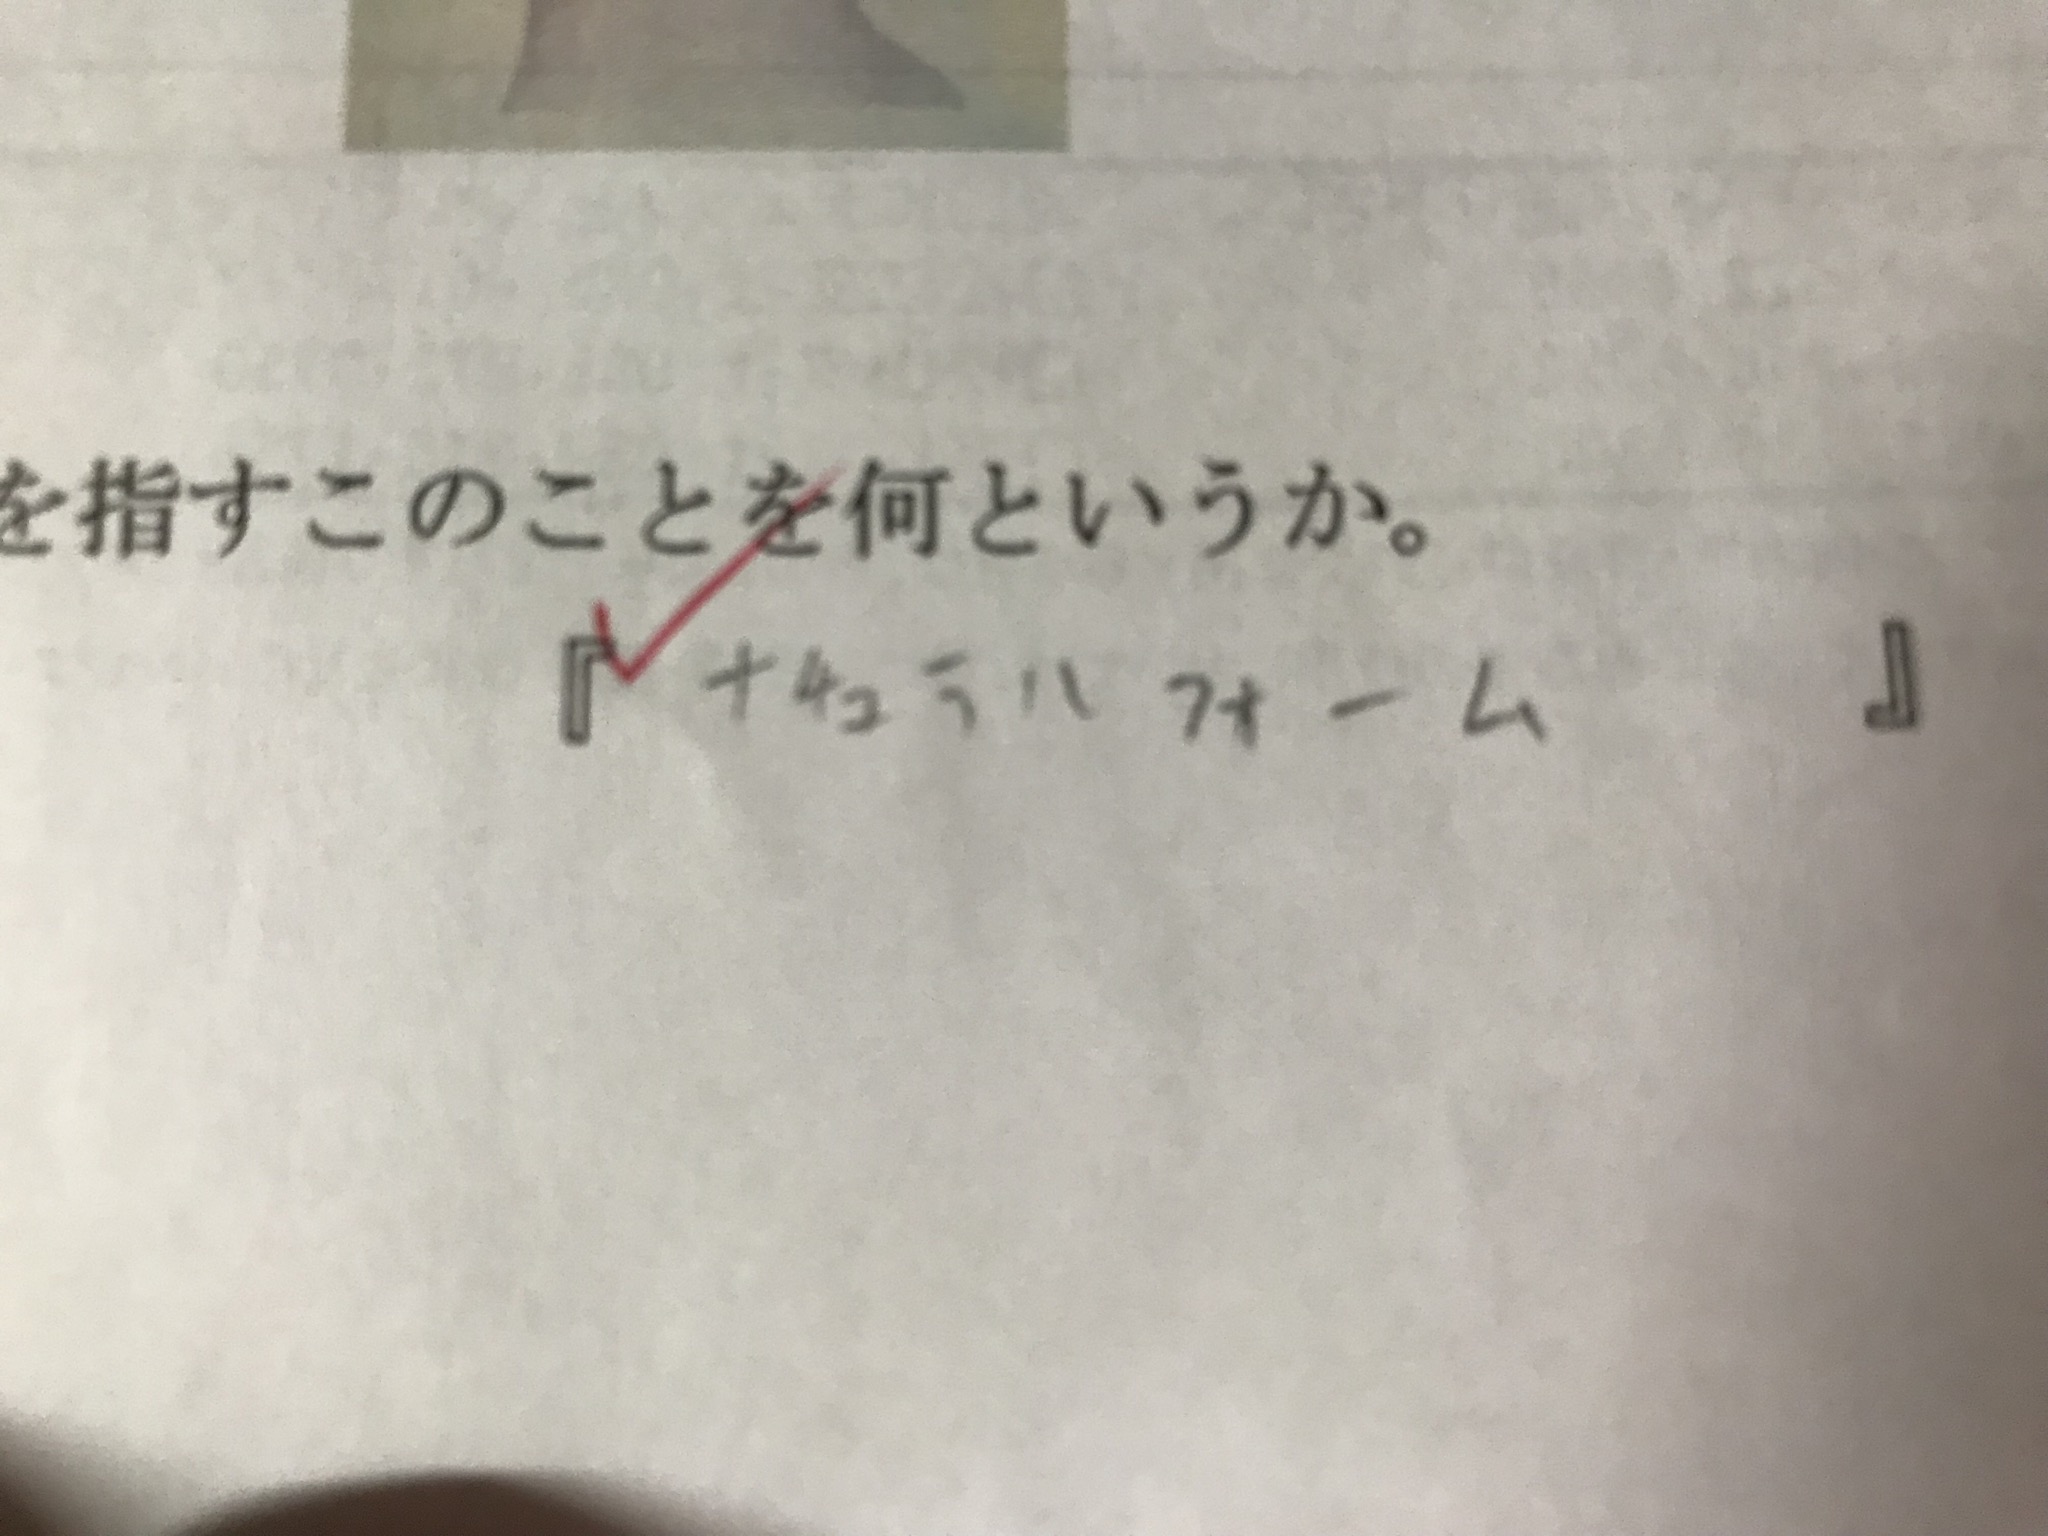 を指すこのことを何というか。
『ナチュラルフォーム』